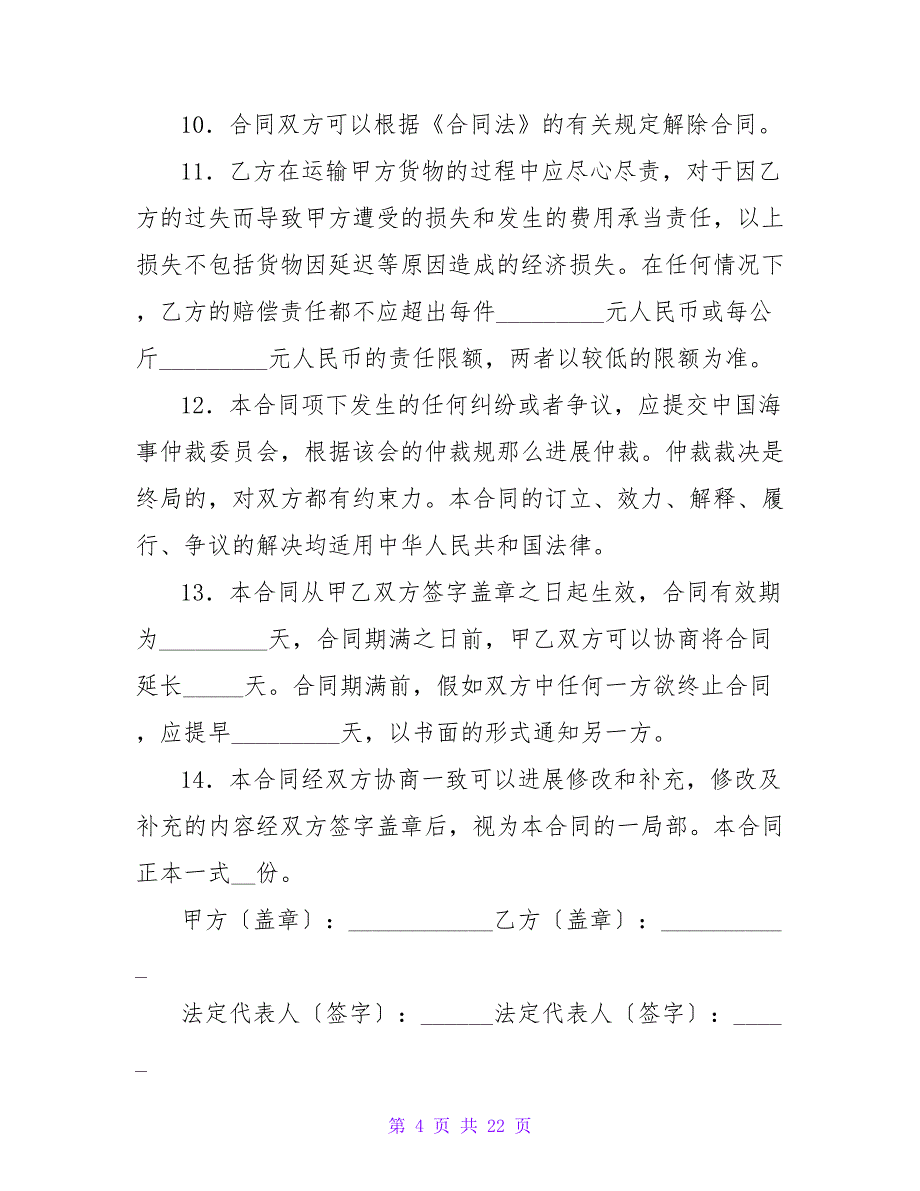 10．合同双方可以根据《合同法》的有关规定解除合同。
11．乙方在运输甲方货物的过程中应尽心尽责，对于因乙
方的过失而导致甲方遭受的损失和发生的费用承当责任，以上
损失不包括货物因延迟等原因造成的经济损失。在任何情况下
，乙方的赔偿责任都不应超出每件_________元人民币或每公
斤_________元人民币的责任限额，两者以较低的限额为准。
12．本合同项下发生的任何纠纷或者争议，应提交中国海
事仲裁委员会，根据该会的仲裁规那么进展仲裁。仲裁裁决是
终局的，对双方都有约束力。本合同的订立、效力、解释、履
行、争议的解决均适用中华人民共和国法律。
13．本合同从甲乙双方签字盖章之日起生效，合同有效期
为_________天，合同期满之日前，甲乙双方可以协商将合同
延长_____天。合同期满前，假如双方中任何一方欲终止合同
，应提早_________天，以书面的形式通知另一方。
14．本合同经双方协商一致可以进展修改和补充，修改及
补充的内容经双方签字盖章后，视为本合同的一局部。本合同
正本一式__份。
甲方〔盖章〕：____________乙方〔盖章〕：__________
_
法定代表人〔签字〕：______法定代表人〔签字〕：____
_
第 4 页 共 22 页